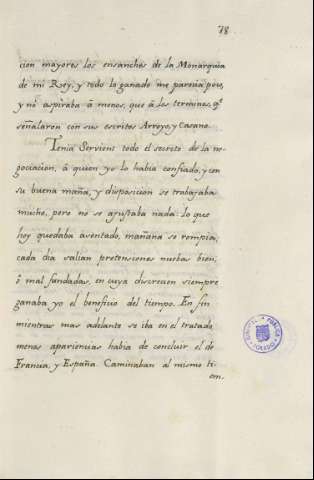 78
cion mayores los ensanches de la Monarquia
de mi Rey, y todo lo ganado me parecia poco,
y ni aspiraba á menos, que á los terminos, q.e
señalaron con sus escritos Arroyo, y Casano.
Tenia Servient todo el secreto de la ne-
gociacion, á quien yo lo habia confiado, y con
su buena maña, y disposicion se trabajaba
mucho, pero no se ajustaba nada: lo que
hoy quedaba asentado, mañana se rompia;
cada dia salian pretensiones nuebas bien,
ó mal fundadas, en cuya discrecion siempre
ganaba yo el beneficio del tiempo. En fin
mientras mas adelante se iba en el tratado
menos apariencias habia de concluir el de
Francia, y España. Caminaban al mismo ti-
em-
TOLEDO